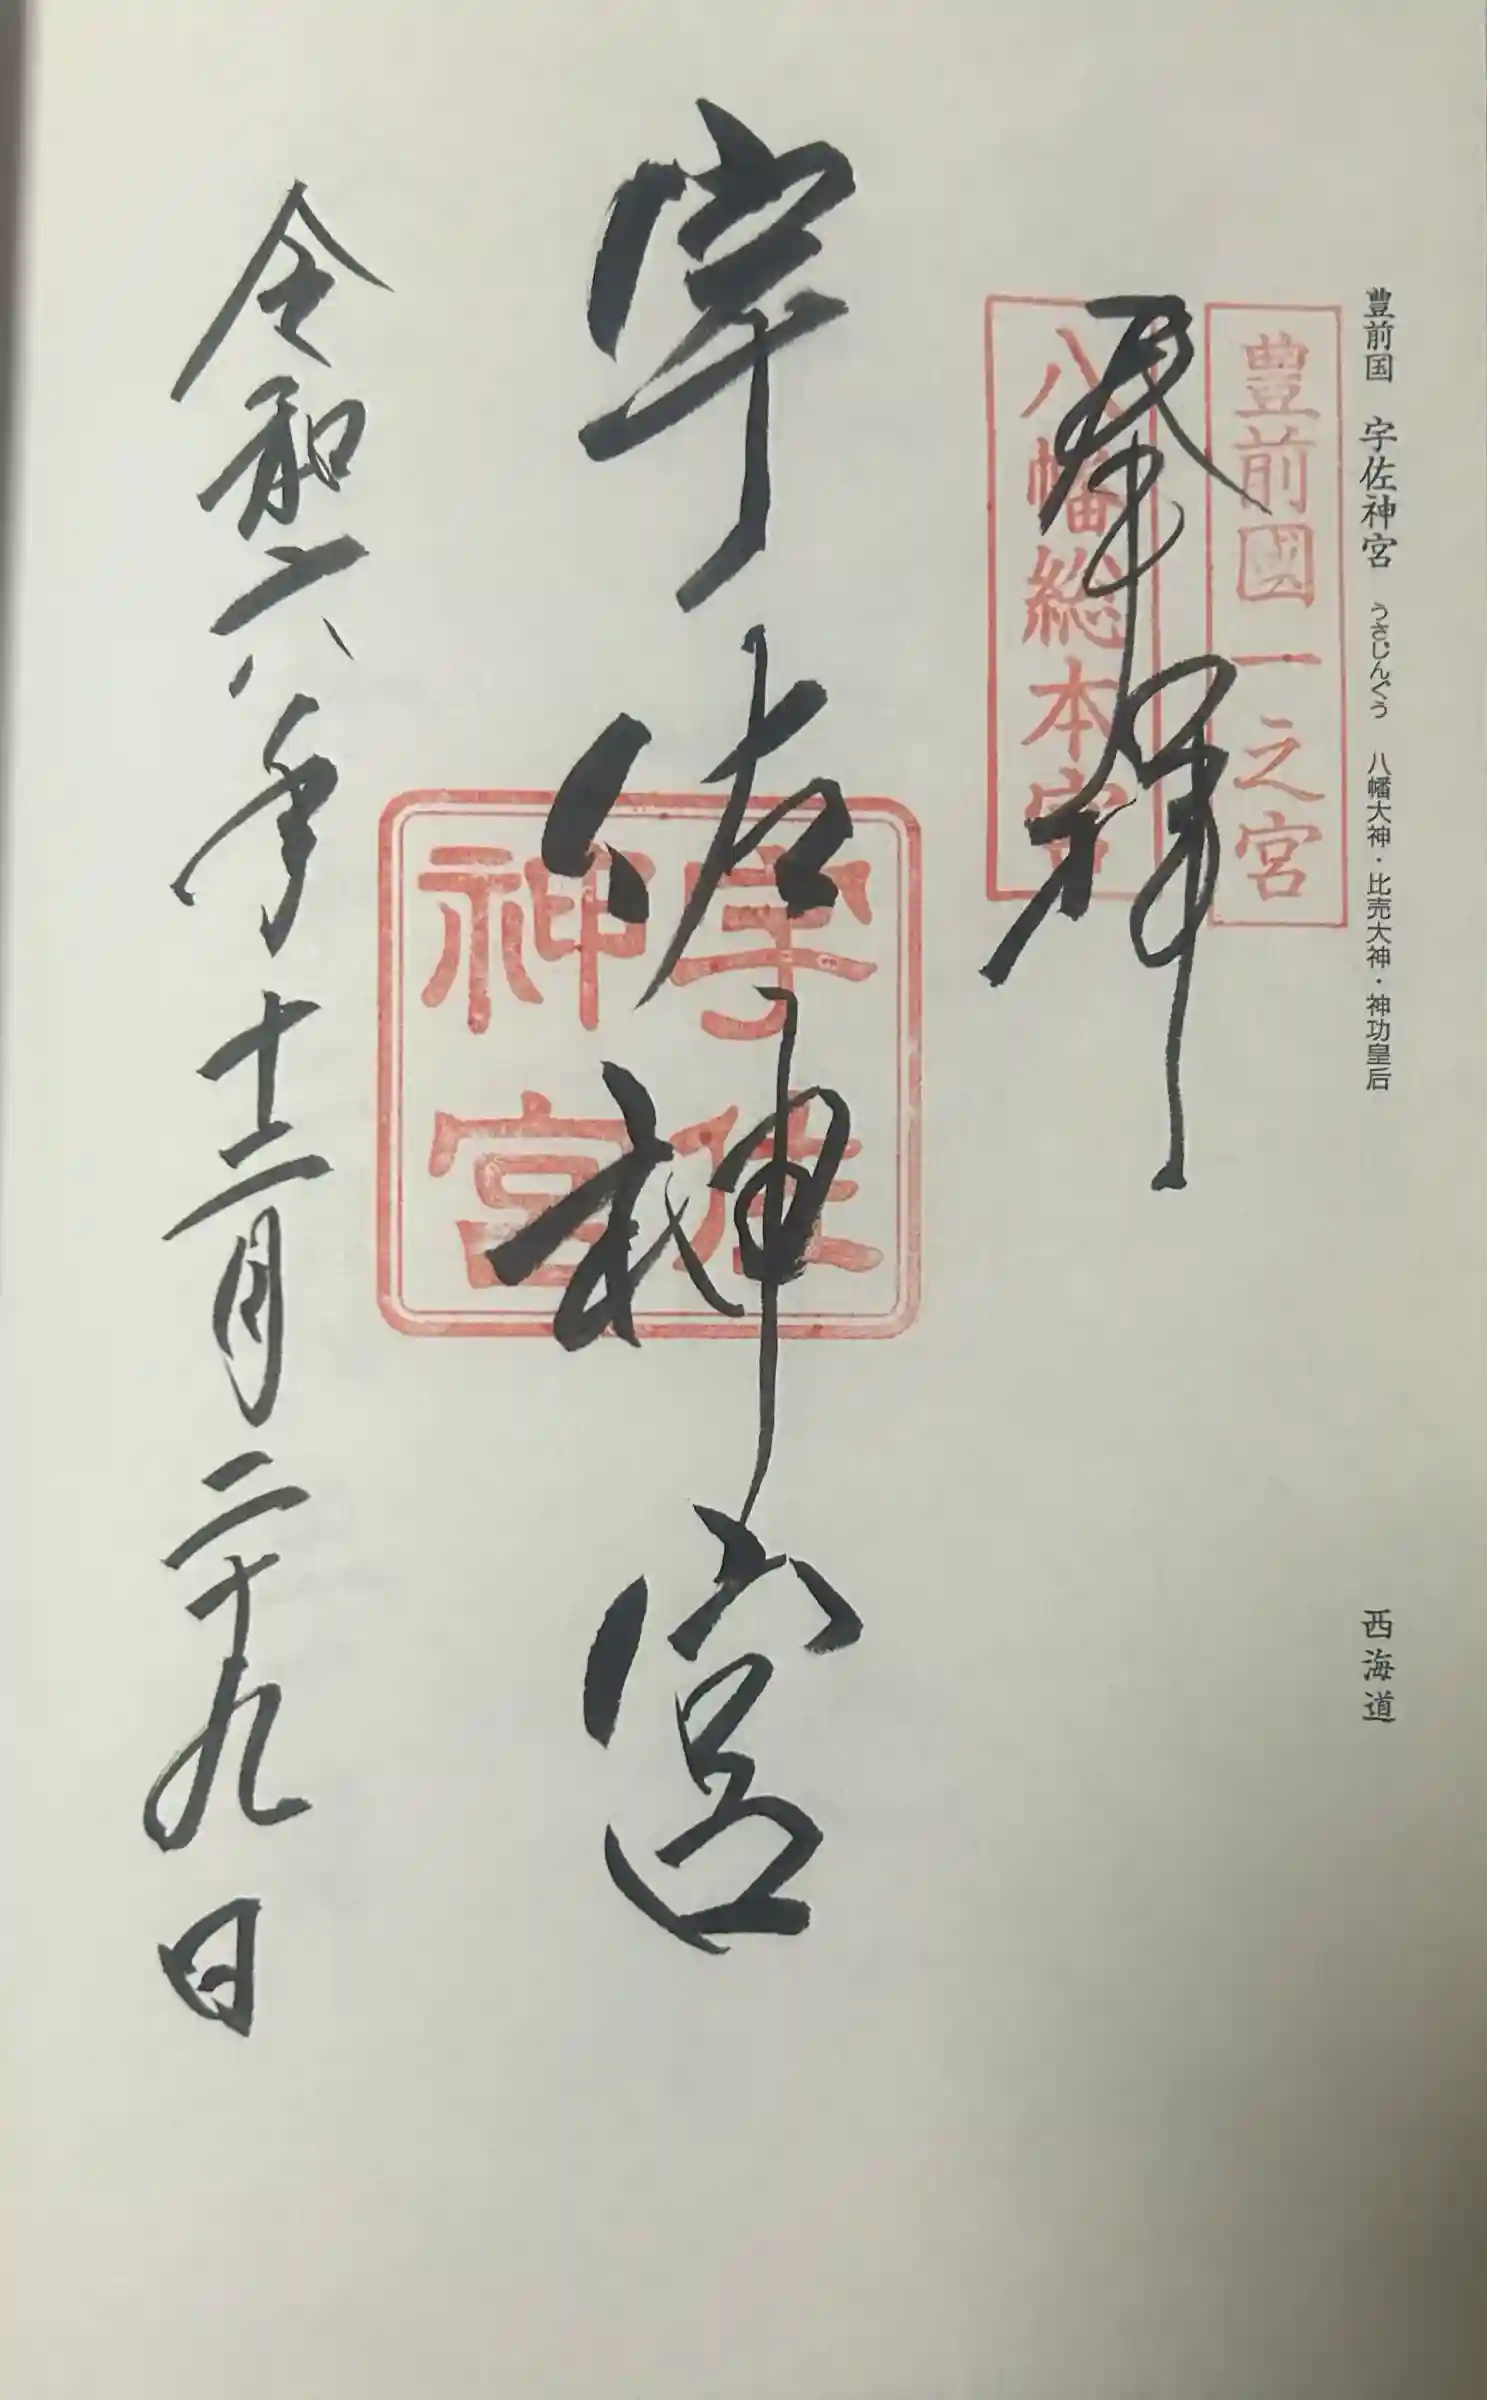 豊前国 宇佐神宮 うさじんぐう 八幡大神・比売大神・神功皇后
西海道
豊前國一之宮
八幡総本宮
奉拝
宇佐神宮
宇佐神宮
令和六年十二月二十九日